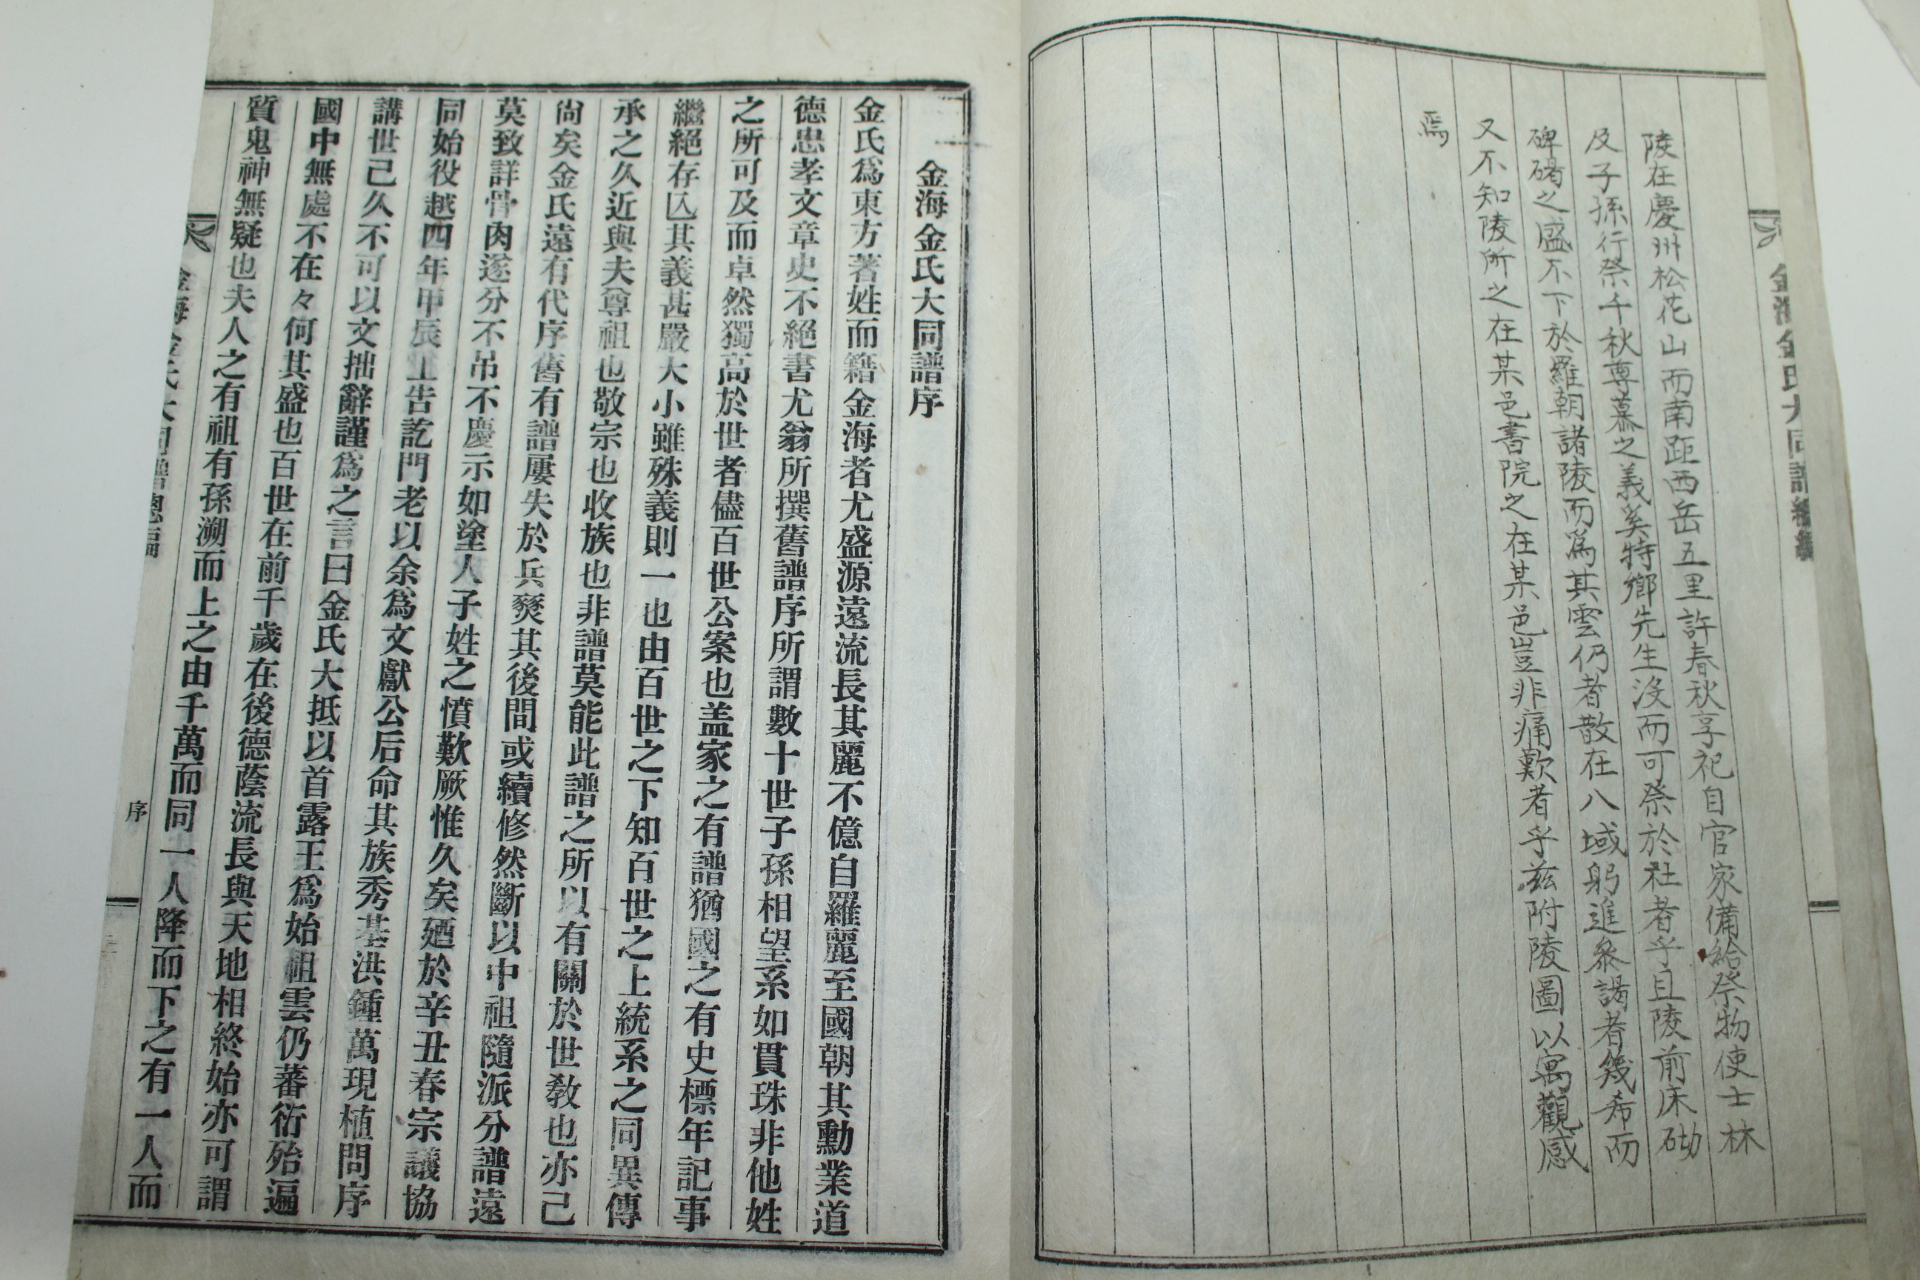 金海金氏大同譜
陵在慶州松花山而南距西岳五里許春秋享祀自官家備給祭物使士林
及子孫行祭千秋尊慕之義奚特鄉先生沒而可祭於社者乎且陵前床砌
碑碣之盛不下於羅朝諸陵而爲其雲仍者散在八域躬進參謁者幾希而
又不知陵所之在某邑書院之在某邑豈非痛歎者乎玆附陵圖以寓觀感
焉
金海金氏大同譜序
金氏爲東方著姓而籍金海者尤盛源遠流長其麗不億自羅麗至國朝其勳業道
德忠孝文章史不絕書尤翁所撰舊譜序所謂數十世子孫相望系如貫珠非他姓
之所可及而卓然獨高於世者儘百世公案也盖家之有譜猶國之有史標年記事
繼絕存亾其義甚嚴大小雖殊義則一也由百世之下知百世之上統系之同異傳
承之久近與夫尊祖也敬宗也收族也非譜莫能此譜之所以有關於世敎也亦已
尙矣金氏遠有代序舊有譜屢失於兵燹其後間或續修然斷以中祖隨派分譜遠
莫致詳骨肉遂分不吊不慶示如塗人子姓之憤歎厥惟久矣廼於辛丑春宗議協
同始役越四年甲辰工告訖門老以余爲文獻公后命其族秀基洪鍾萬現植問序
講世已久不可以文拙辭謹爲之言曰金氏大抵以首露王爲始祖雲仍蕃衍殆遍
國中無處不在々何其盛也百世在前千歲在後德蔭流長與天地相終始亦可謂
質鬼神無疑也夫人之有祖有孫溯而上之由千萬而同一人降而下之有一人而
金海金氏大同譜總編
序